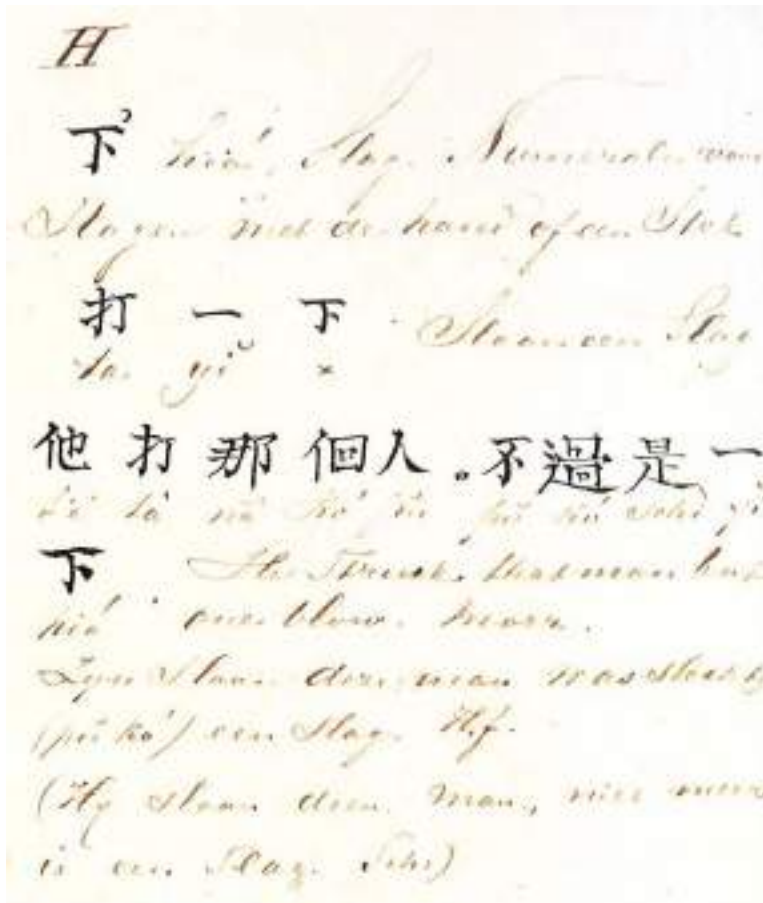 H
下 hiá, Slag. Numerale van
Slagen met de hand of een Stok
打 一 下 Slaan een Slag
ta yĭ ×
他 打 那 個 人 。不 過 是 一
下 He Struck that man but
hiá one blow more.
Zyn Slaan dien man was slechts
(pŭ kó) een Slag. Hf.
(Hy slaan dien man, niet meer
is een Slag. Schr)